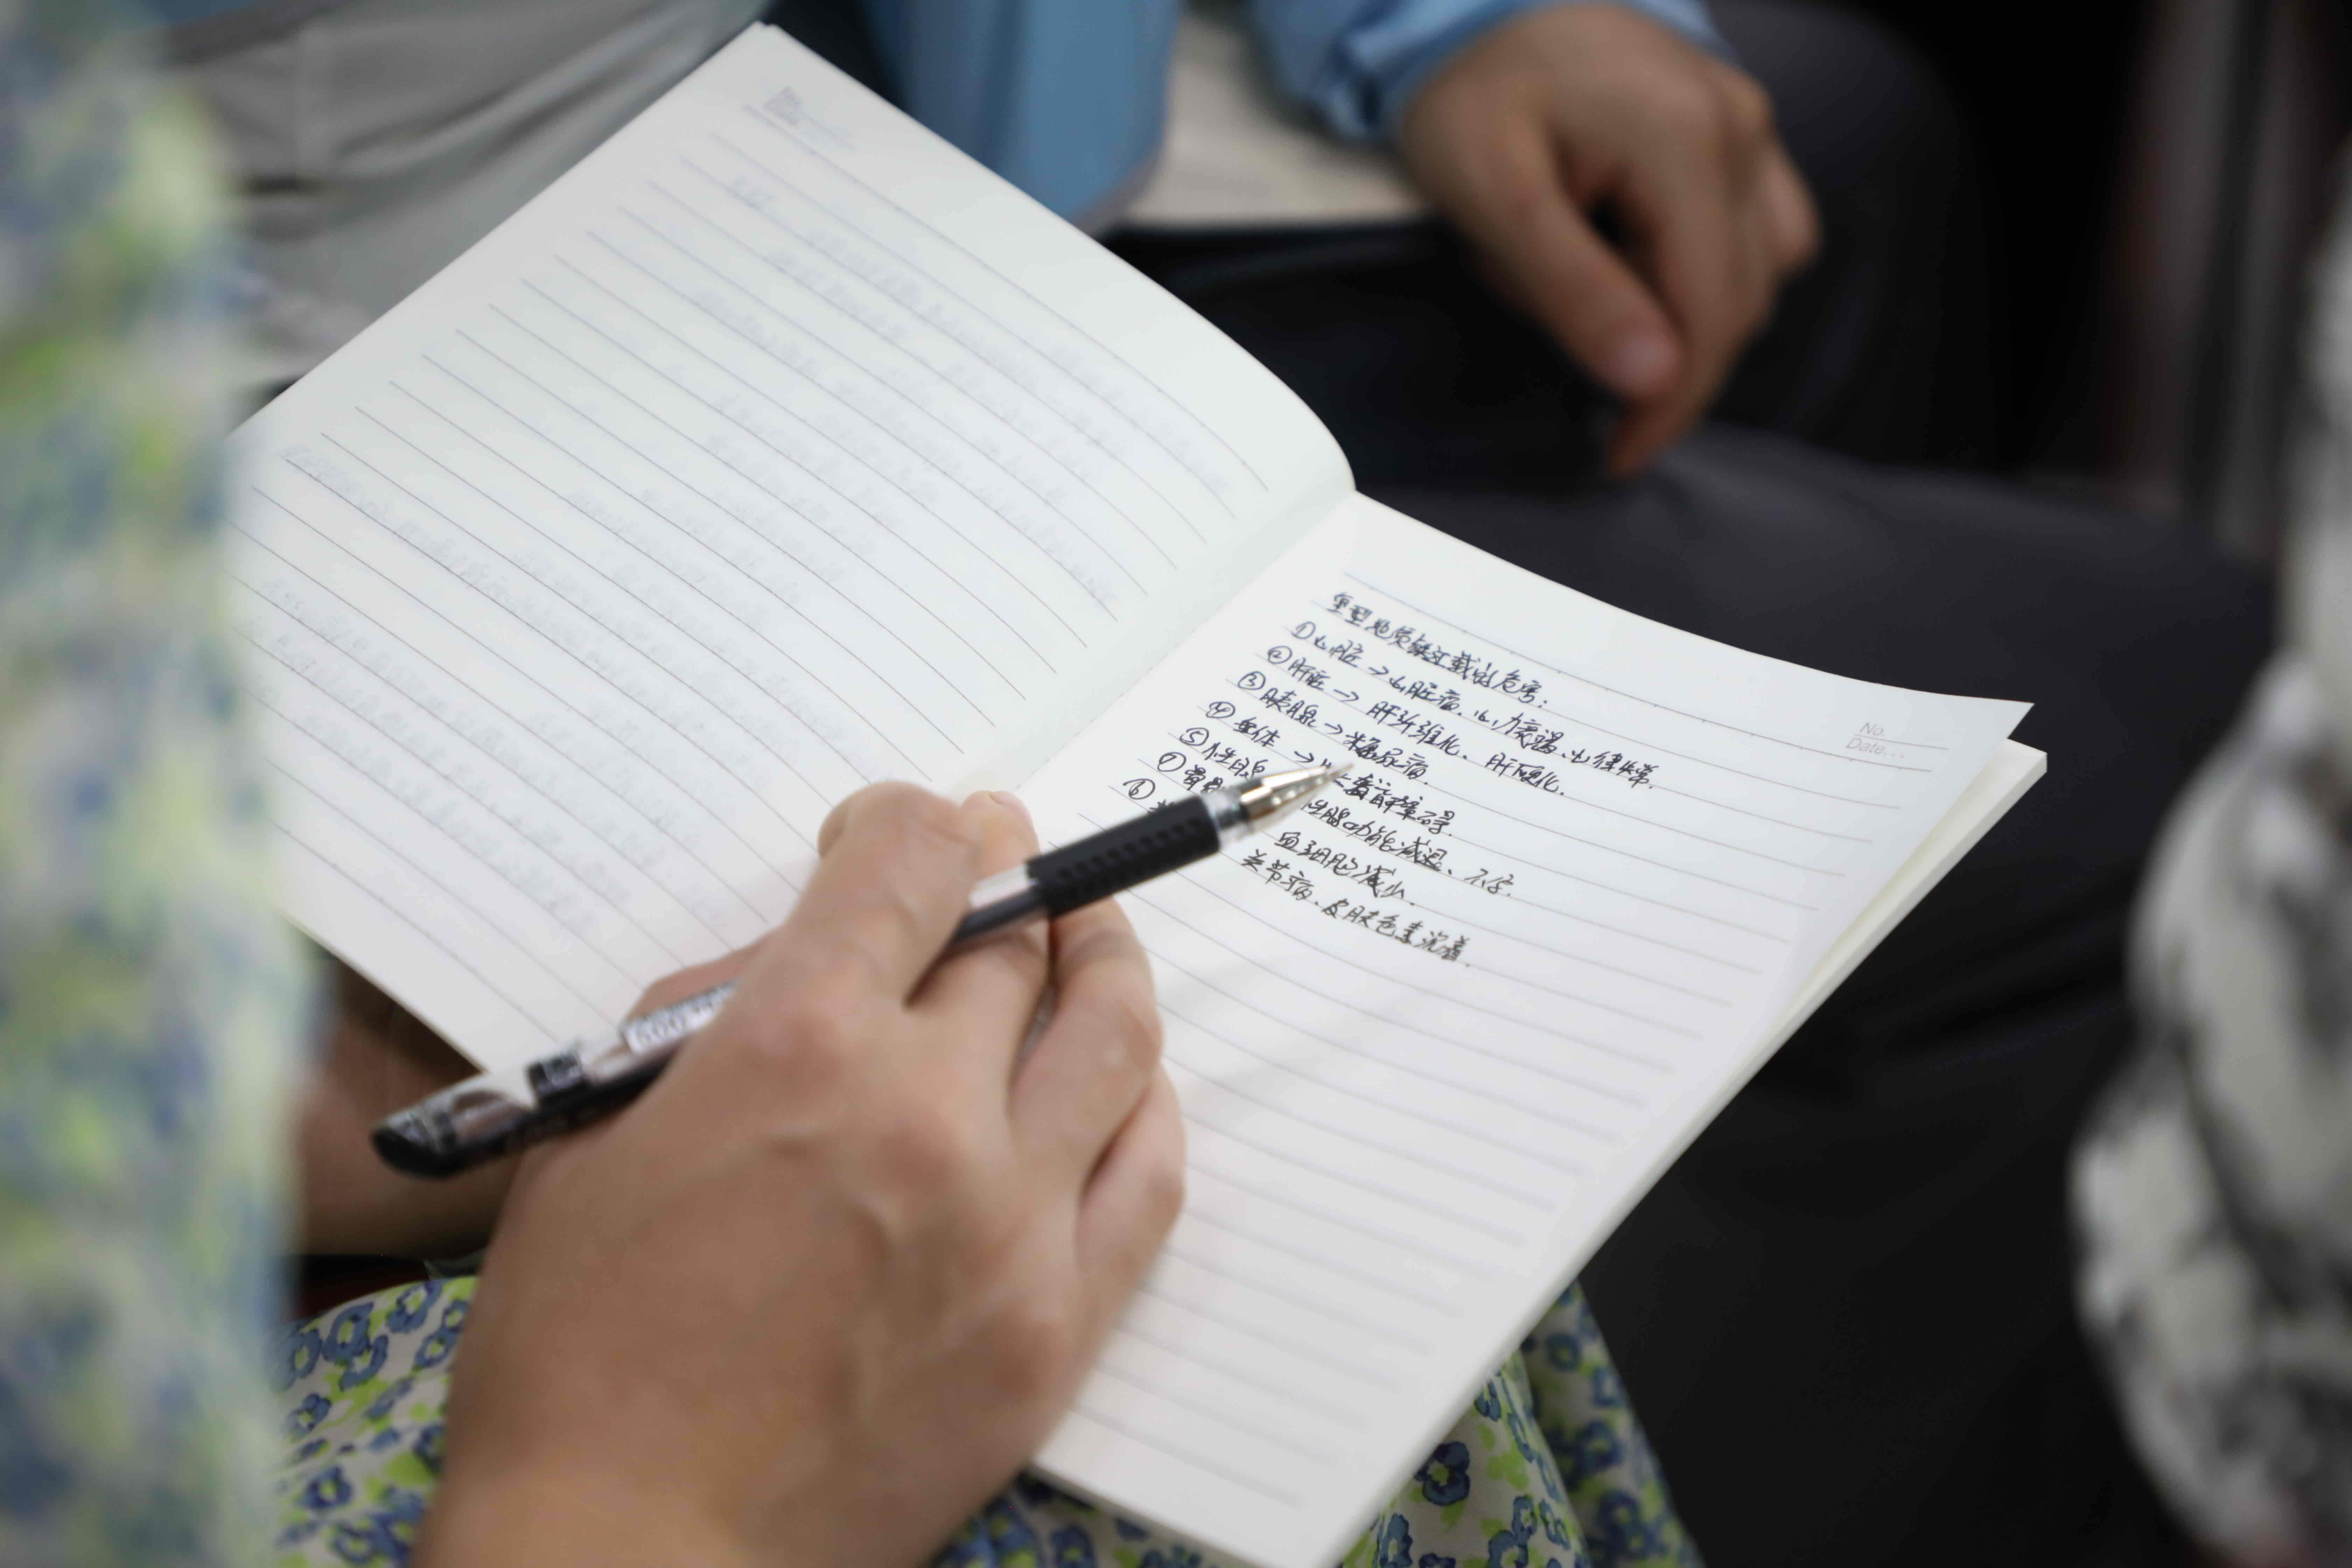 重型地贫铁过载的危害:
① 心脏 → 心脏病、心力衰竭、心律失常.
② 肝脏 → 肝纤维化、肝硬化.
③ 胰腺 → 糖尿病.
④ 垂体 → 生长发育障碍.
⑤ 性腺 性腺功能减退、不孕.
⑦ 骨髓 血细胞减少.
⑥ 关节病、皮肤色素沉着.
No.
Date.